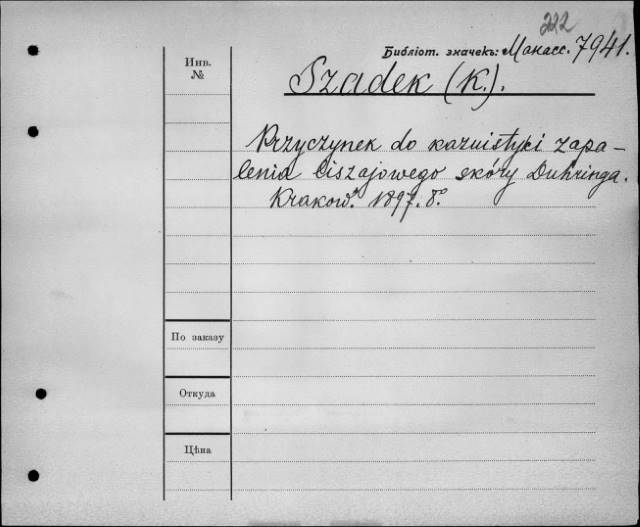 222
Библіот. значекъ: Манасс. 7941.
Инв.
№
Szadek (K.).
Przyczynek do kazuistyki zapa-
lenia liszajowego skóry Duhringa.
Kraków. 1897. 8.°
По заказу
Откуда
Цѣна